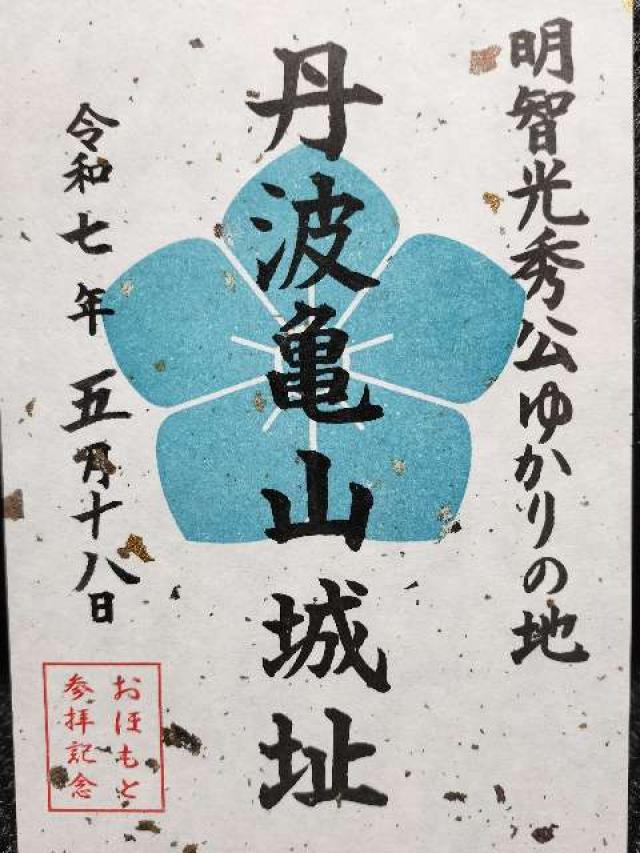 明智光秀公ゆかりの地
丹波亀山城址
令和七年五月十八日
おほもと
参拝記念